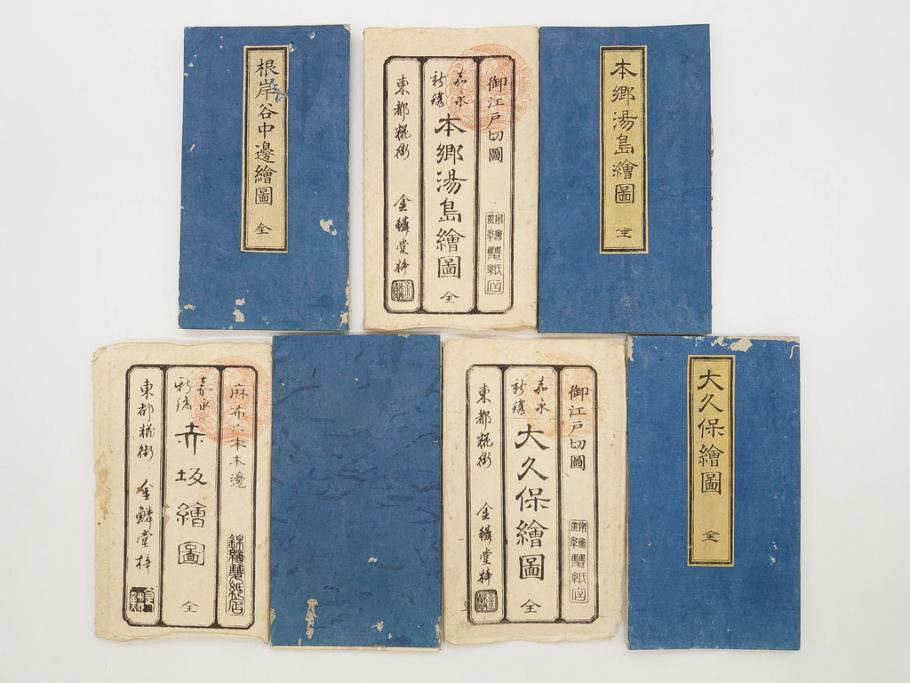 根岸谷中邊繪圖
全
御江戸切圖
嘉永
新鐫
本郷湯島繪圖
全
東都糀街
金鱗堂梓
本郷湯島繪圖
全
麻布六本木邊
嘉永
新鐫
赤坂繪圖
全
東都糀街
金鱗堂梓
御江戸切圖
嘉永
新鐫
大久保繪圖
全
東都糀街
金鱗堂梓
大久保繪圖
全